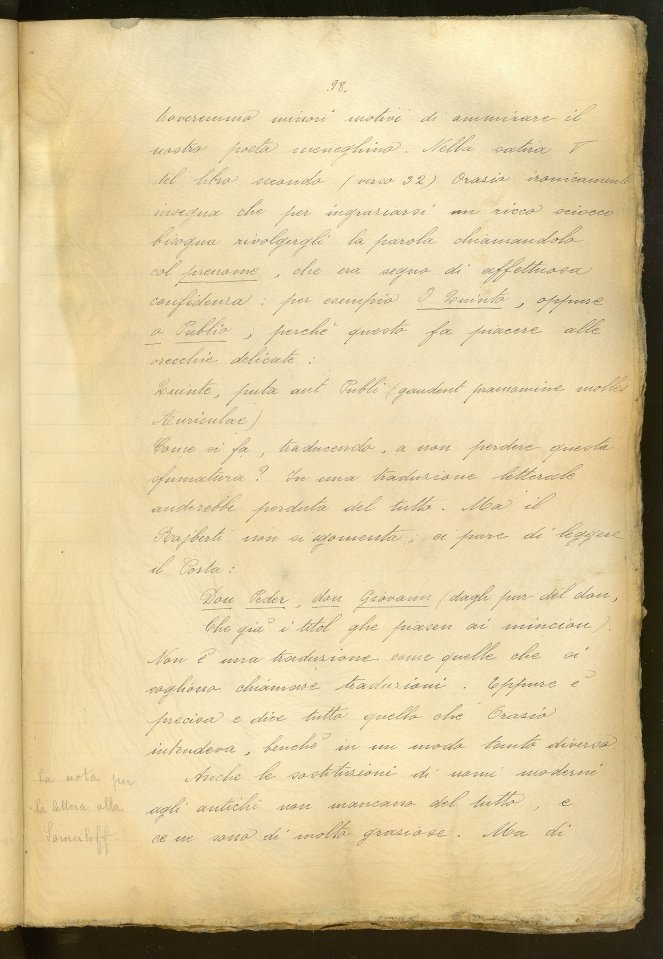 98.
troveremmo minori motivi di ammirare il
nostro poeta meneghino. Nella satira V
del libro secondo (verso 32) Orazio ironicamente
insegna che per ingraziarsi un ricco sciocco
bisogna rivolgergli la parola chiamandolo
col prenome, che era segno di affettuosa
confidenza: per esempio O Quinto, oppure
o Publio, perchè questo fa piacere alle
orecchie delicate:
Quinte, puta aut Publi (gaudent praenomine molles
Auriculae)
Come si fa, traducendo, a non perdere questa
sfumatura? In una traduzione letterale
anderebbe perduta del tutto. Ma il
Rajberti non si sgomenta, ci pare di leggere
il Porta:
Don Peder, don Giovann (dagh pur del don,
Che già i titol ghe piasen ai mincion).
Non è una traduzione come quelle che si
vogliono chiamare traduzioni. Eppure è
precisa e dice tutto quello che Orazio
intendeva, benchè in un modo tanto diverso
Anche le sostituzioni di nomi moderni
agli antichi non mancano del tutto, e
ce ne sono di molto graziose. Ma di
La nota per
la lettera alla